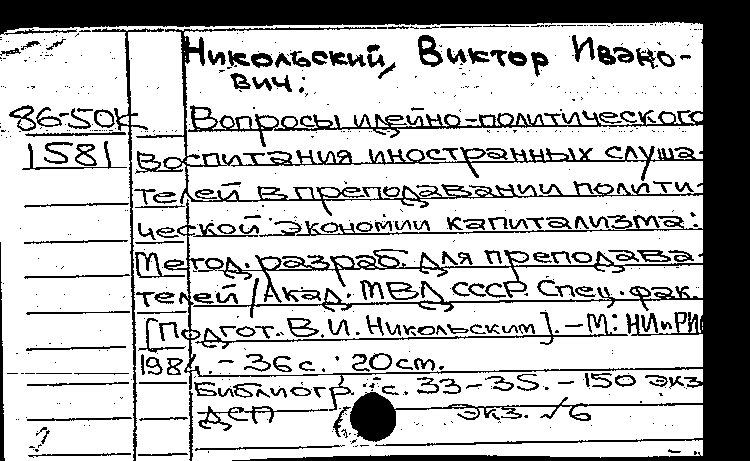 Никольский, Виктор Ивано-
вич.
86-50к Вопросы идейно-политического
1581 воспитания иностранных слуша-
телей в преподавании полити-
ческой экономии капитализма:
Метод. разраб. для преподава-
телей / Акад. МВД СССР. Спец. фак.
[Подгот. В. И. Никольским]. – М: НИиРИО
1984. – 36 с.; 20 см.
Библиогр.: с. 33-35. – 150 экз
ДСП экз. √6